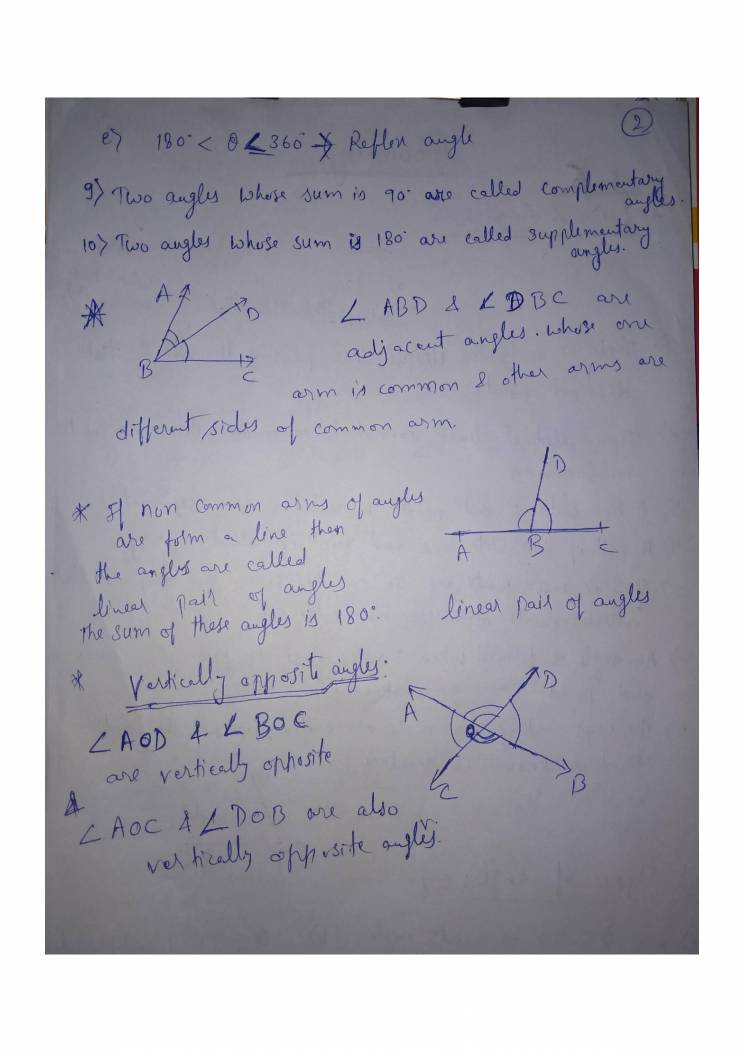 2
e) 180° < θ < 360° → Reflex angle
9) Two angles whose sum is 90° are called complementary
angles.
10) Two angles whose sum is 180° are called supplementary
angles.
*
A
D
B
C
∠ ABD & ∠ DBC are
adjacent angles. whose one
arm is common & other arms are
different sides of common arm.
* If non common arms of angles
are form a line then
the angles are called
linear pair of angles
The sum of these angles is 180°.
D
A
B
C
linear pair of angles
* Vertically opposite angles:
∠AOD & ∠BOC
are vertically opposite
&
∠AOC & ∠DOB are also
vertically opposite angles.
A
D
O
C
B